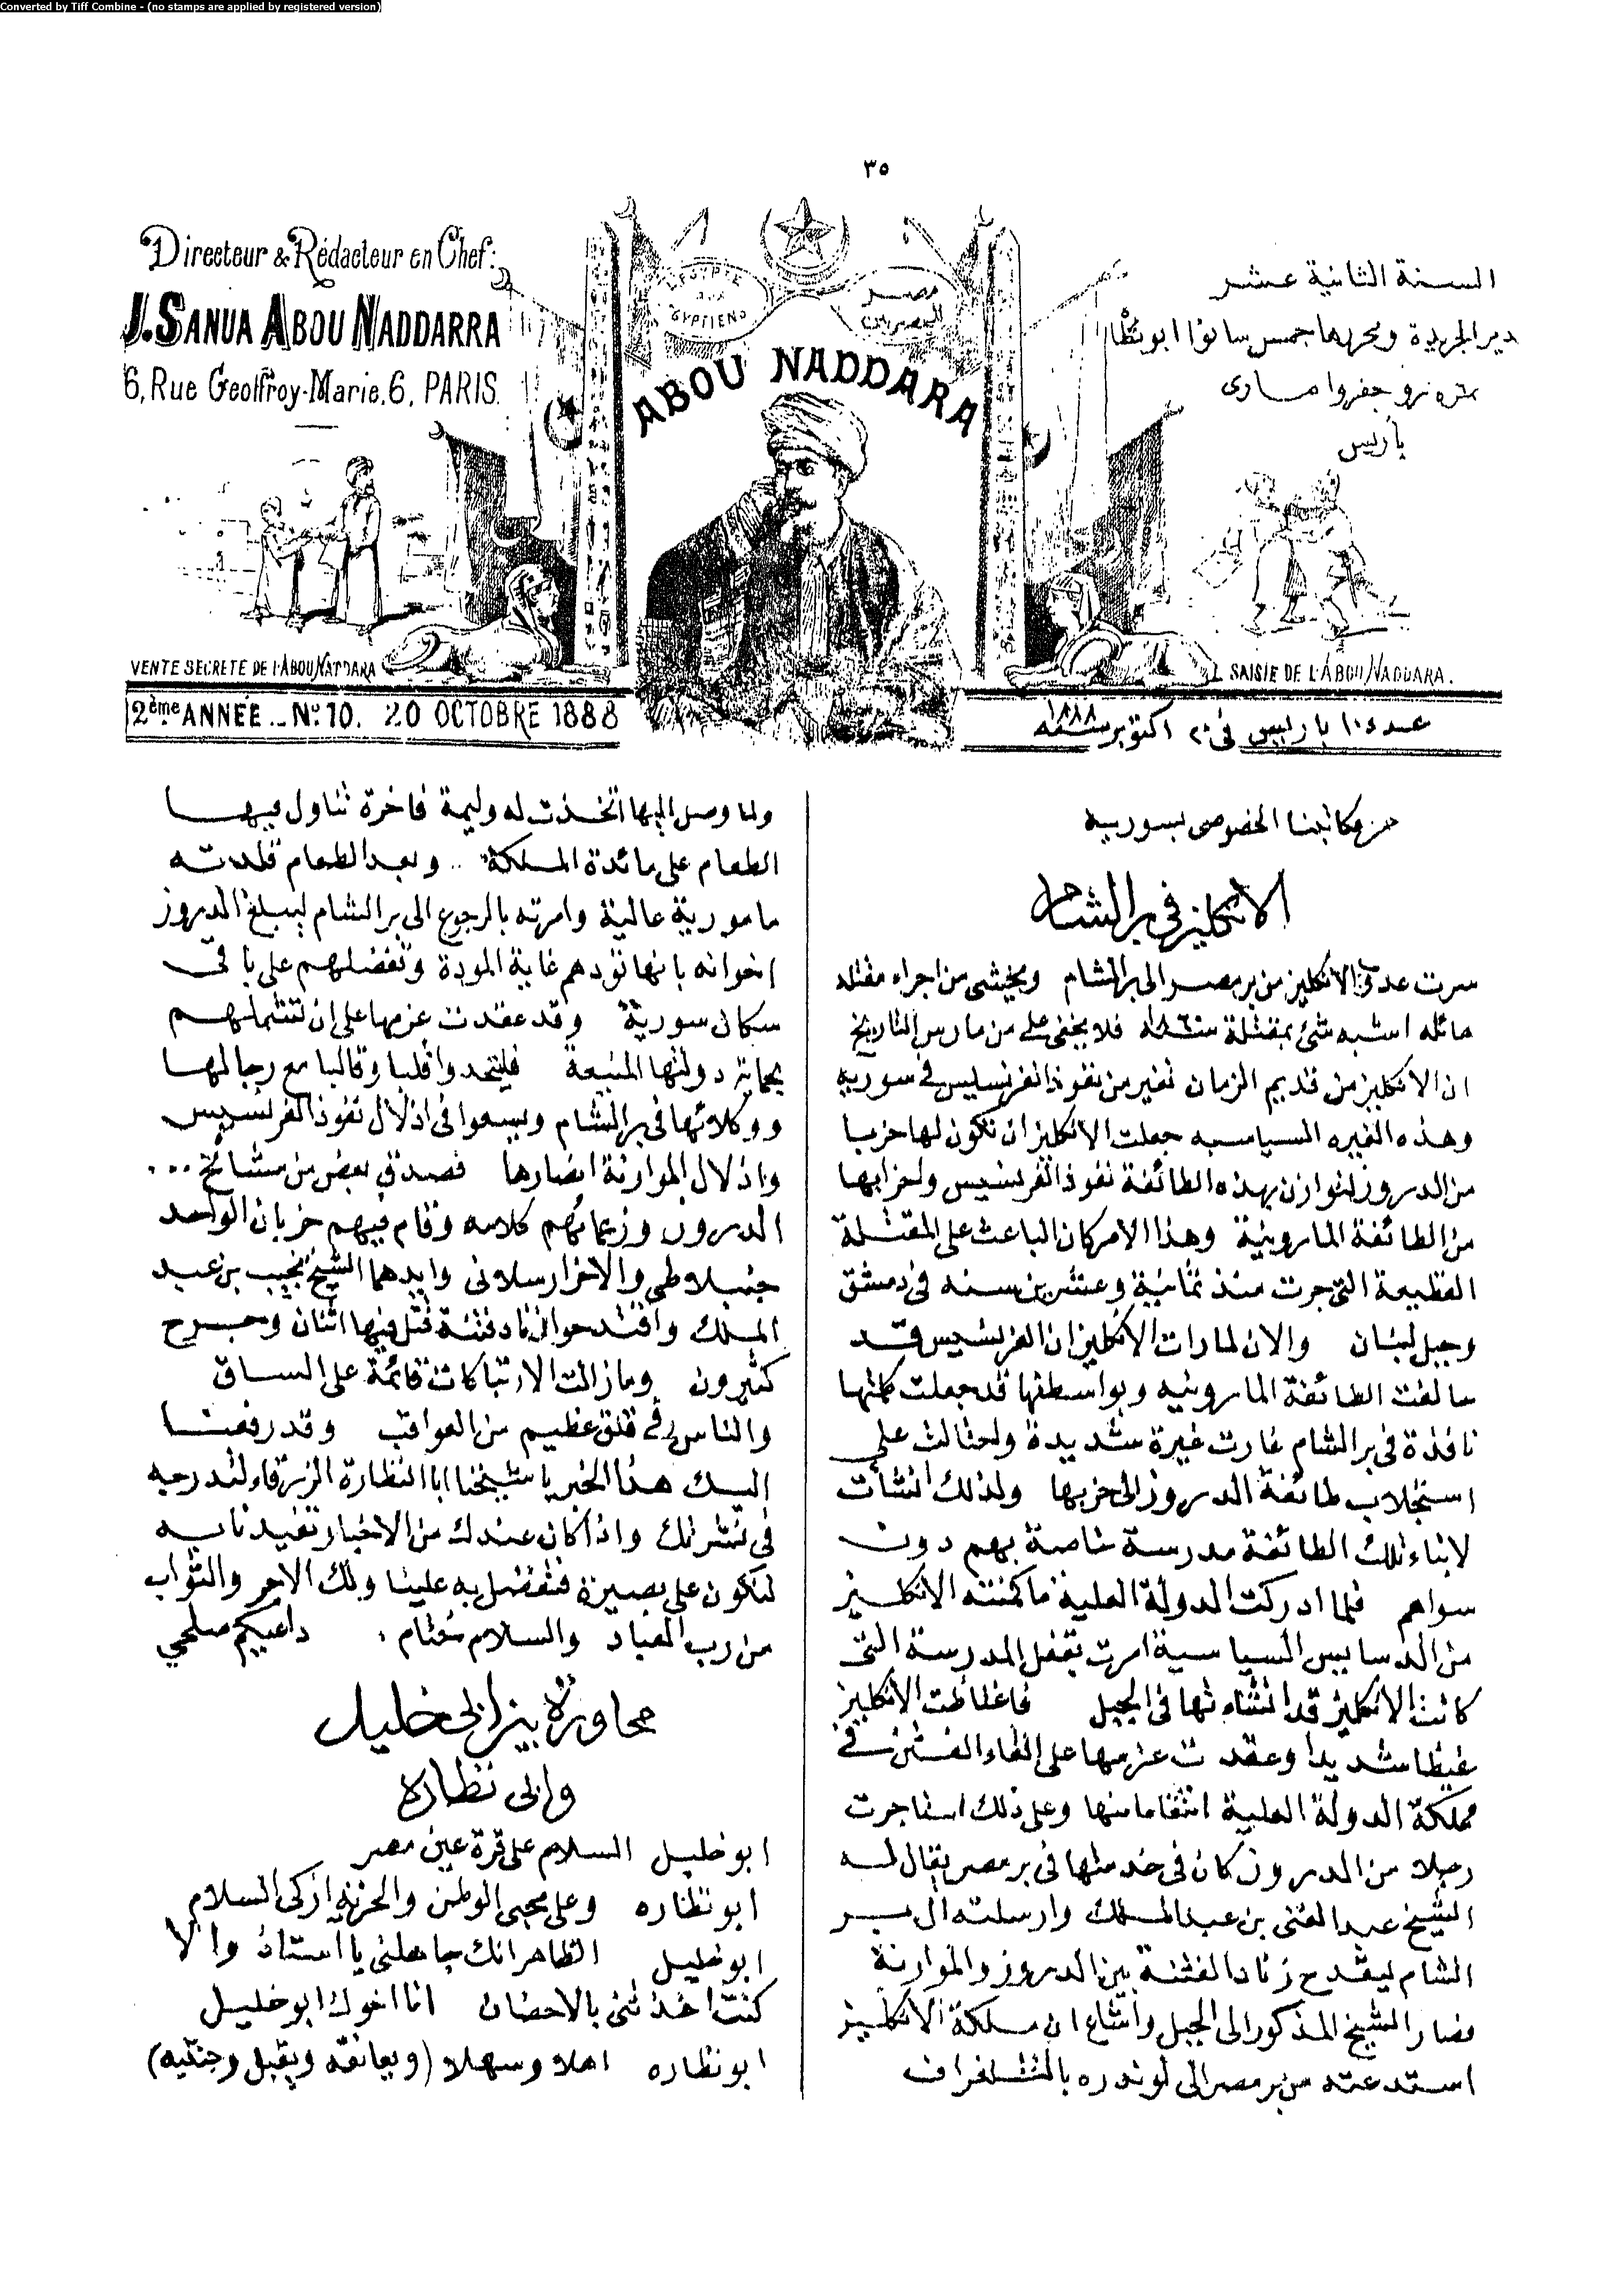 Converted by Tiff Combine - (no stamps are applied by registered version)
٣٥
Directeur & Rédacteur en Chef:
J. SANUA ABOU NADDARRA
6, Rue Geoffroy-Marie, 6, PARIS.
L'EGYPTE
AUX
EGYPTIENS
مصر
للمصريين
ABOU NADDARA
السنة الثانية عشر
دير الجريدة ومحررها جمس سانوا ابو نظا
نمره ٦ رو جفروا مارى
باريس
VENTE SECRETE DE L'ABOU NADDARA
SAISIE DE L'ABOU NADDARA.
2ème ANNÉE _ No. 10. 20 OCTOBRE 1888
عدد ١٠ باريس فى ٢٠ اكتوبر سنة ١٨٨٨
من مكاتبنا الخصوصى بسوريه
الانكليز فى بر الشام
سرت عدوة الانكليز من بر مصر الى بر الشام ويخشى من اجراء مقتله
هائله اشبه شئ بمقتلة سنة ١٨٦٠ فلا يخفى على من مارس التاريخ
ان الانكليز من قديم الزمان تغير من نفوذ الفرنسيس فى سوريه
وهذه الغيره السياسيه جعلت الانكليز ان تكون لها حزبا
من الدروز لتوازن بهذه الطائفة نفوذ الفرنسيس واحزابها
من الطائفة المارونية وهذا الامر كان الباعث على المقتلة
العظيمة التى جرت منذ ثمانية وعشرين سنه فى دمشق
وجبل لبنان والان لما رات الانكليز ان الفرنسيس قد
سالفت الطائفة المارونيه وبواسطتها قد جعلت كلمتها
نافذة فى بر الشام غارت غيرة شديدة واحتالت على
استجلاب طائفة الدروز الى حزبها ولذلك انشأت
لابناء تلك الطائفة مدرسة خاصة بهم دون
سواهم فلما ادركت الدولة العلية ما كمنته الانكليز
من الدسايس السياسية امرت بقفل المدرسة التى
كانت الانكليز قد انشاءتها فى الجبل فاغتاظت الانكليز
غيظا شديدا وعقدت عزمها على القاء الفتن فى
مملكة الدولة العلية انتقاما منها وعلى ذلك استاجرت
رجلا من الدروز كان فى خدمتها فى بر مصر يقال له
الشيخ عبد الغنى بن عبد الملك وارسلته الى بر
الشام ليقدح زناد الفتنة بين الدروز والموارنة
فصار الشيخ المذكور الى الجبل واشاع ان ملكة الانكليز
استدعته من بر مصر الى لوندره بالتلغراف
ولما وصل اليها اتخذت له وليمة فاخرة تناول فيها
الطعام على مائدة الملكة .. وبعد الطعام قلدته
مامورية عالية وامرته بالرجوع الى بر الشام ليبلغ الدروز
اخوانه بانها تودهم غاية المودة وتفضلهم على باقى
سكان سورية وقد عقدت عزمها على ان تشملهم
بحماية دولتها المنيعة فليتحدوا قلبا وقالبا مع رجالها
ووكلائها فى بر الشام ويسعوا فى اذلال نفوذ الفرنسيس
واذلال الموارنة انصارها فصدق بعض من مشائخ ...
الدروز وزعمائهم كلامه وقام فيهم حزبان الواحد
جنبلاطى والاخر ارسلانى وايدهما الشيخ نجيب بن عبد
الملك واقتدحوا زناد فتنة قتل فيها اثنان وجرح
كثيرون ومازالت الارتباكات قائمة على الساق
والناس فى قلق عظيم من العواقب وقد رفعنا
اليك هذا الخبر يا شيخنا ابا النظارة الزرقاء لتدرجه
فى نشرتك واذا كان عندك من الاخبار تفيدنا به
لنكون على بصيرة فتفضل به علينا ولك الاجر والثواب
من رب العباد والسلام ختام . داعيكم صلحى
محاورة بين ابى خليل
وابى نظاره
ابو خليل السلام على قرة عين مصر
ابو نظاره وعلى محبى الوطن والحرية ازكى السلام
ابو خليل الظاهر انك جاهلنى يا استاذ والا
كنت اخذتنى بالاحضان انا اخوك ابو خليل
ابو نظاره اهلا وسهلا (ويعانقه ويقبل وجنتيه)